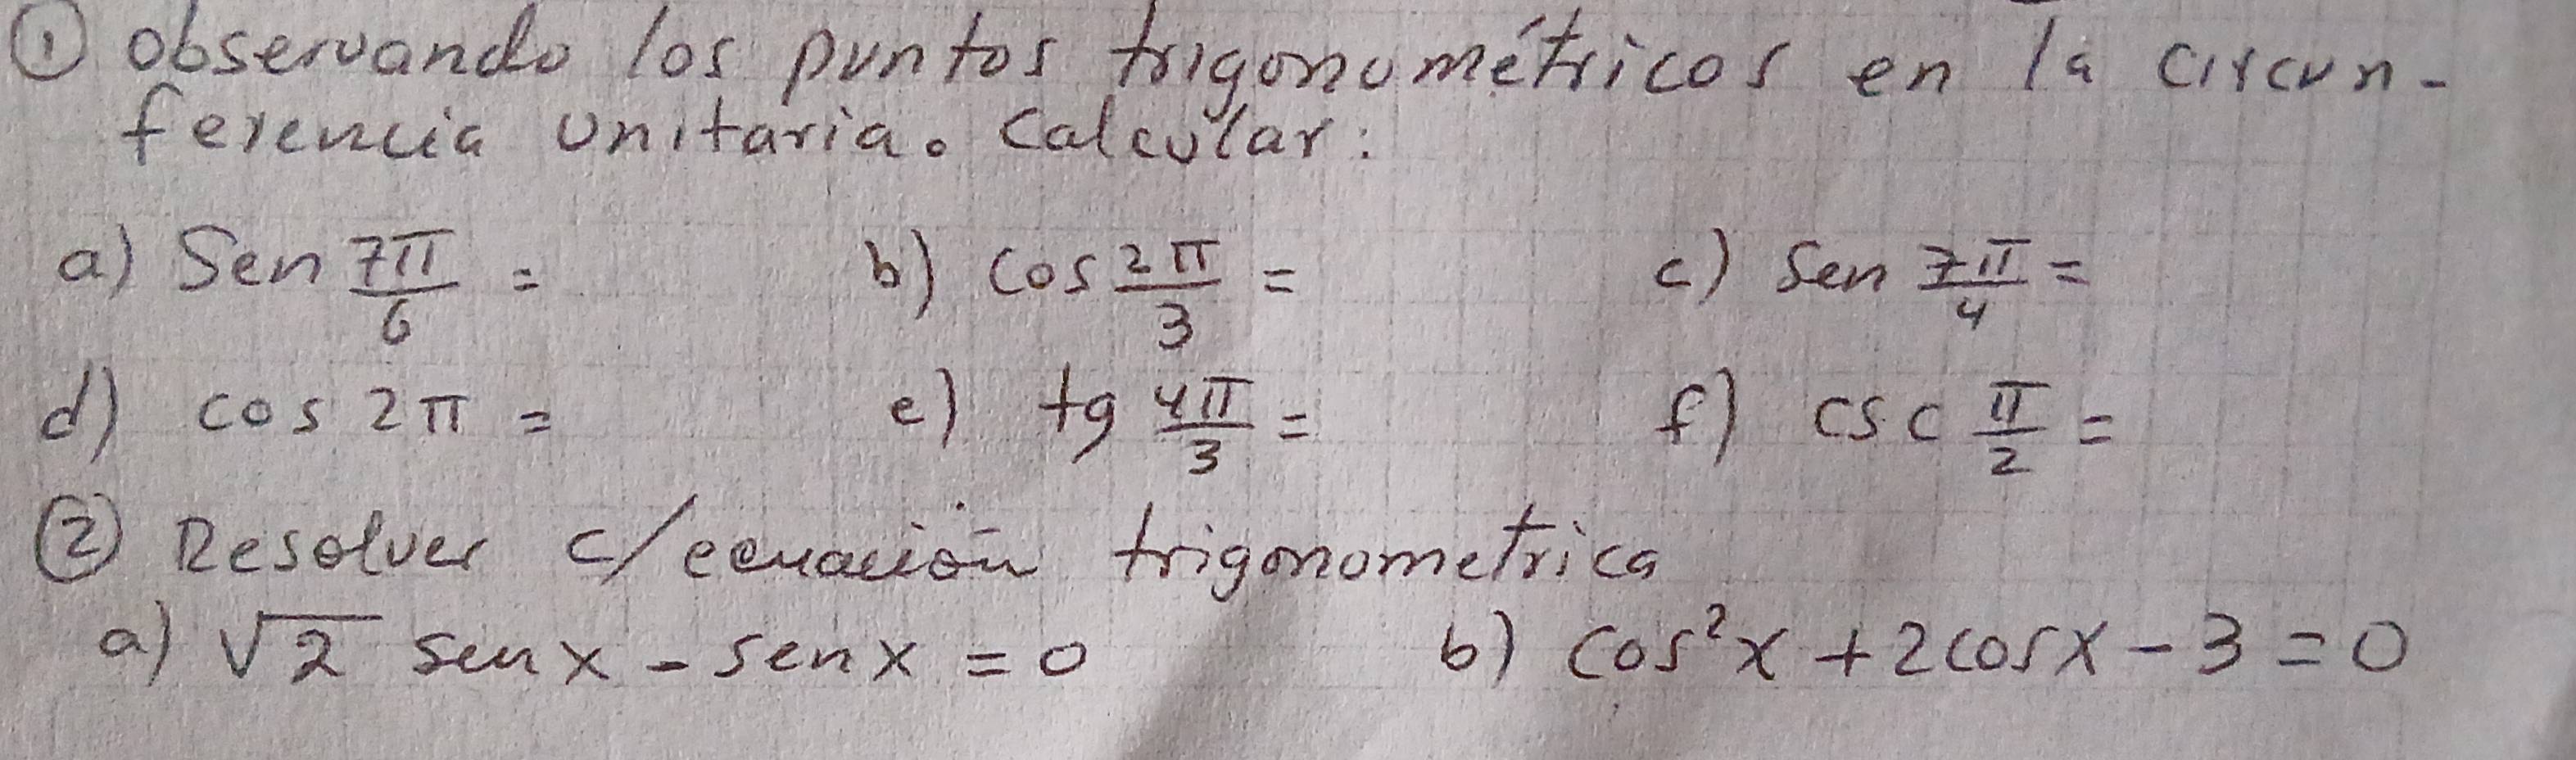 ① Observando los puntos trigonométricos en la circun-
ferencia unitaria. Calcular:
a) Sen 7π/6 = b) Cos 2π/3 = c) Sen 7π/4 =
d) cos 2π = e) tg 4π/3 = f) csc π/2 =
② Resolver c/ecuación trigonometrica
a) √2 senx - senx = 0 b) Cos²x + 2cosx - 3 = 0